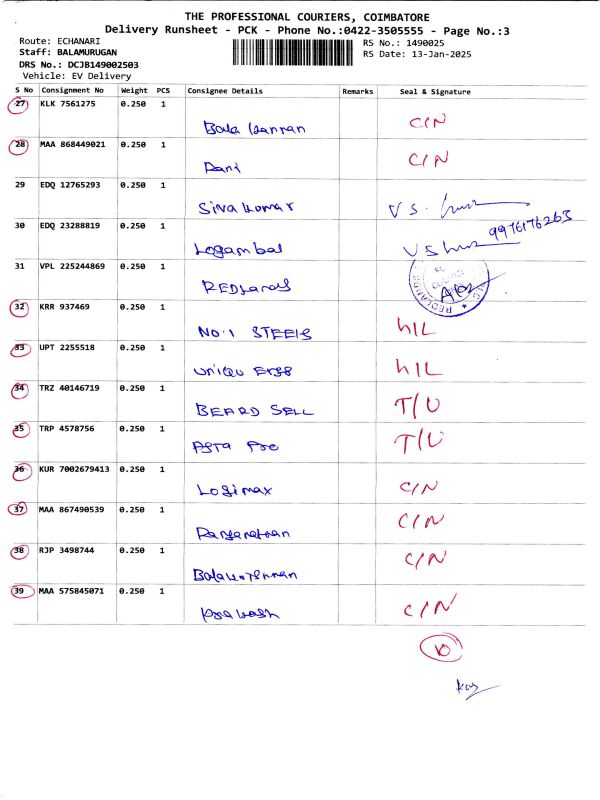 THE PROFESSIONAL COURIERS, COIMBATORE
Delivery Runsheet - PCK - Phone No.:0422-3505555 - Page No.:3
Route: ECHANARI
RS No.: 1490025
Staff: BALAMURUGAN
RS Date: 13-Jan-2025
DRS No.: DCJB149002503
Vehicle: EV Delivery
S No Consignment No Weight PCS Consignee Details Remarks Seal & Signature
27 KLK 7561275 0.250 1
C/N
28 MAA 868449021 0.250 1
C/N
Dani
29 EDQ 12765293 0.250 1
Siva kumar
V S.
9976176263
30 EDQ 23288819 0.250 1
Logambal
31 VPL 225244869 0.250 1
REDLands
32 KRR 937469 0.250 1
No.1 STEELS
h/L
33 UPT 2255518 0.250 1
h/L
34 TRZ 40146719 0.250 1
BEARD SELL
T/U
35 TRP 4578756 0.250 1
T/U
36 KUR 7002679413 0.250 1
Logimax
C/N
37 MAA 867490539 0.250 1
C/N
38 RJP 3498744 0.250 1
C/N
39 MAA 575845071 0.250 1
C/N
10